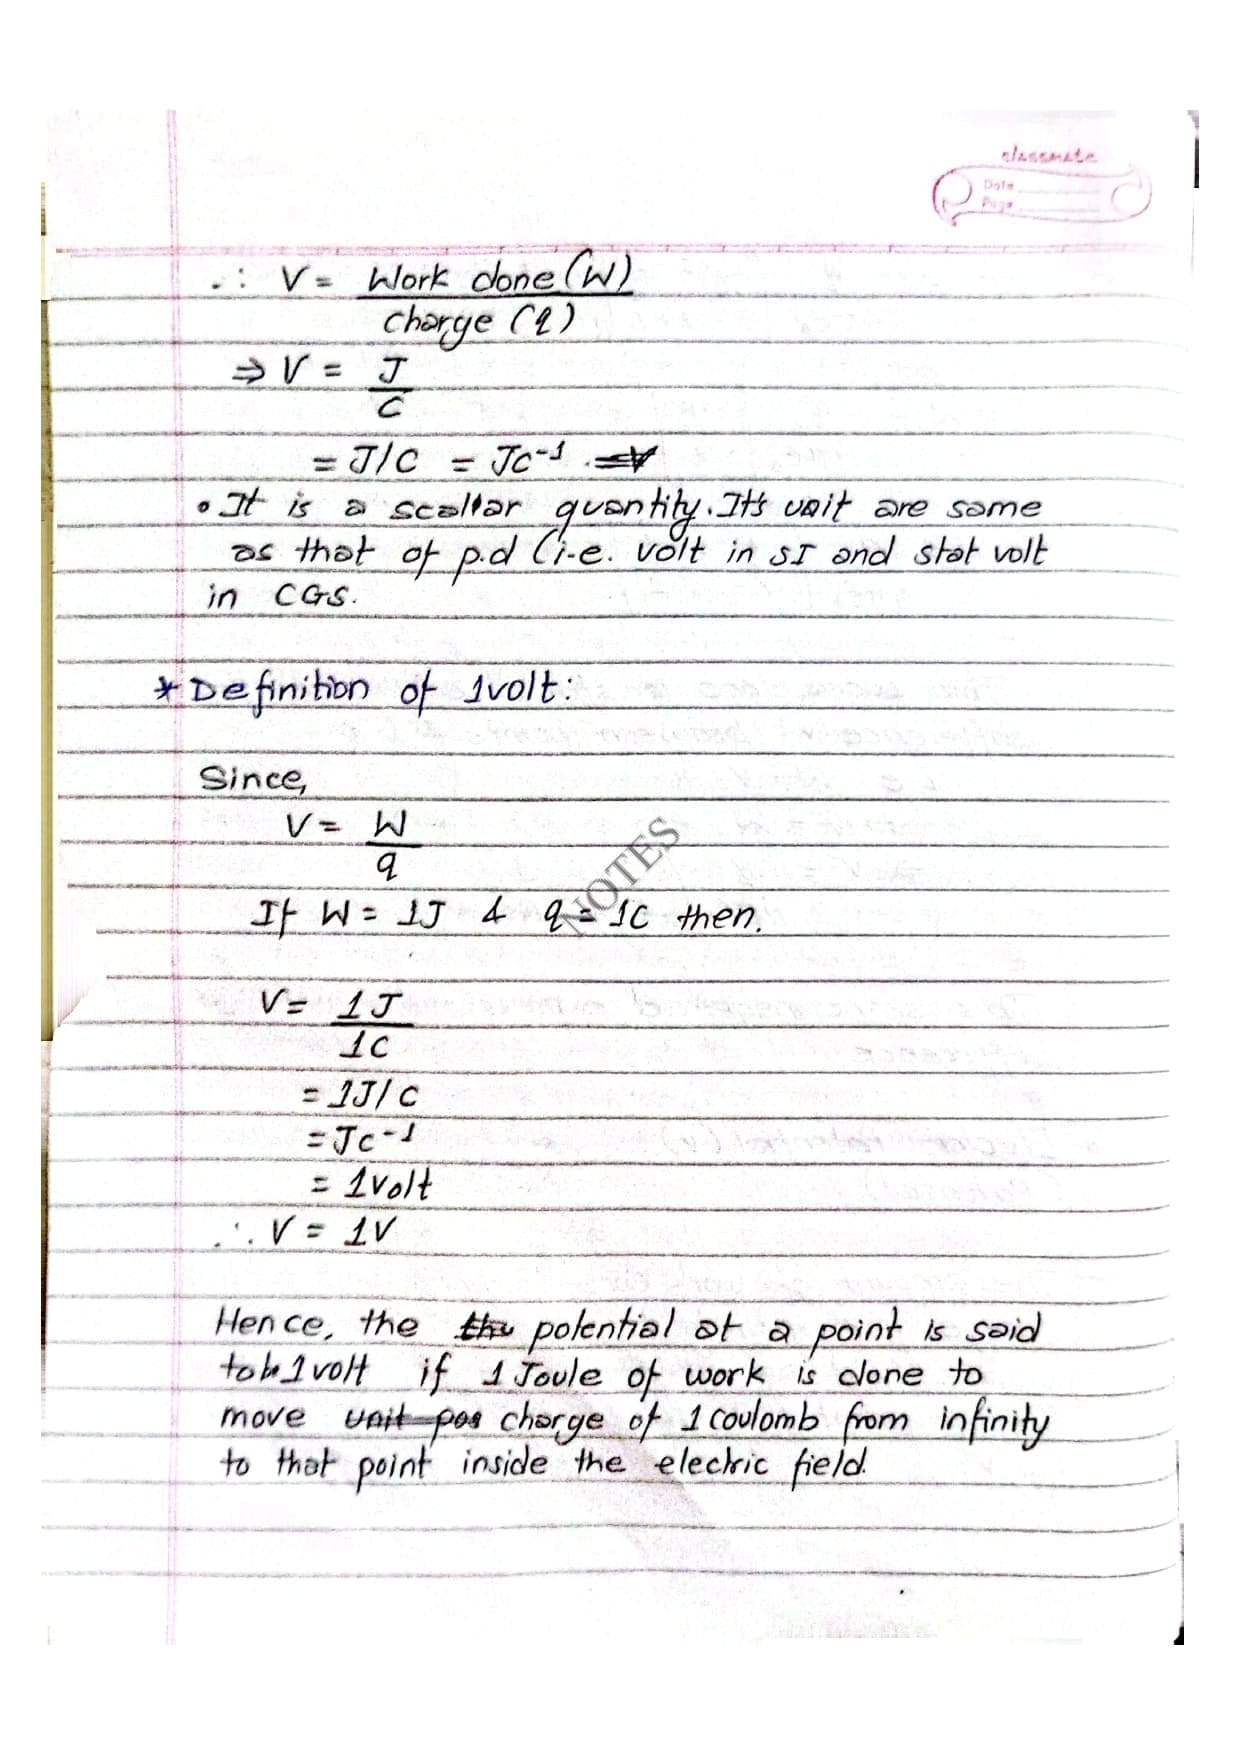 classmate
Date
Page
∴ V = Work done (W)
charge (q)
⇒ V = J
C
= J/C = JC⁻¹ .
• It is a scallar quantity. It's unit are same
as that of p.d (i.e. volt in SI and stat volt
in CGS.
* Definition of 1volt:
Since,
V = W
q
If W = 1J & q = 1C then.
V = 1J
1C
= 1J/C
= JC⁻¹
= 1volt
∴ V = 1V
Hence, the the potential at a point is said
to be 1 volt if 1 Joule of work is done to
move unit pos charge of 1 coulomb from infinity
to that point inside the electric field.
NOTES